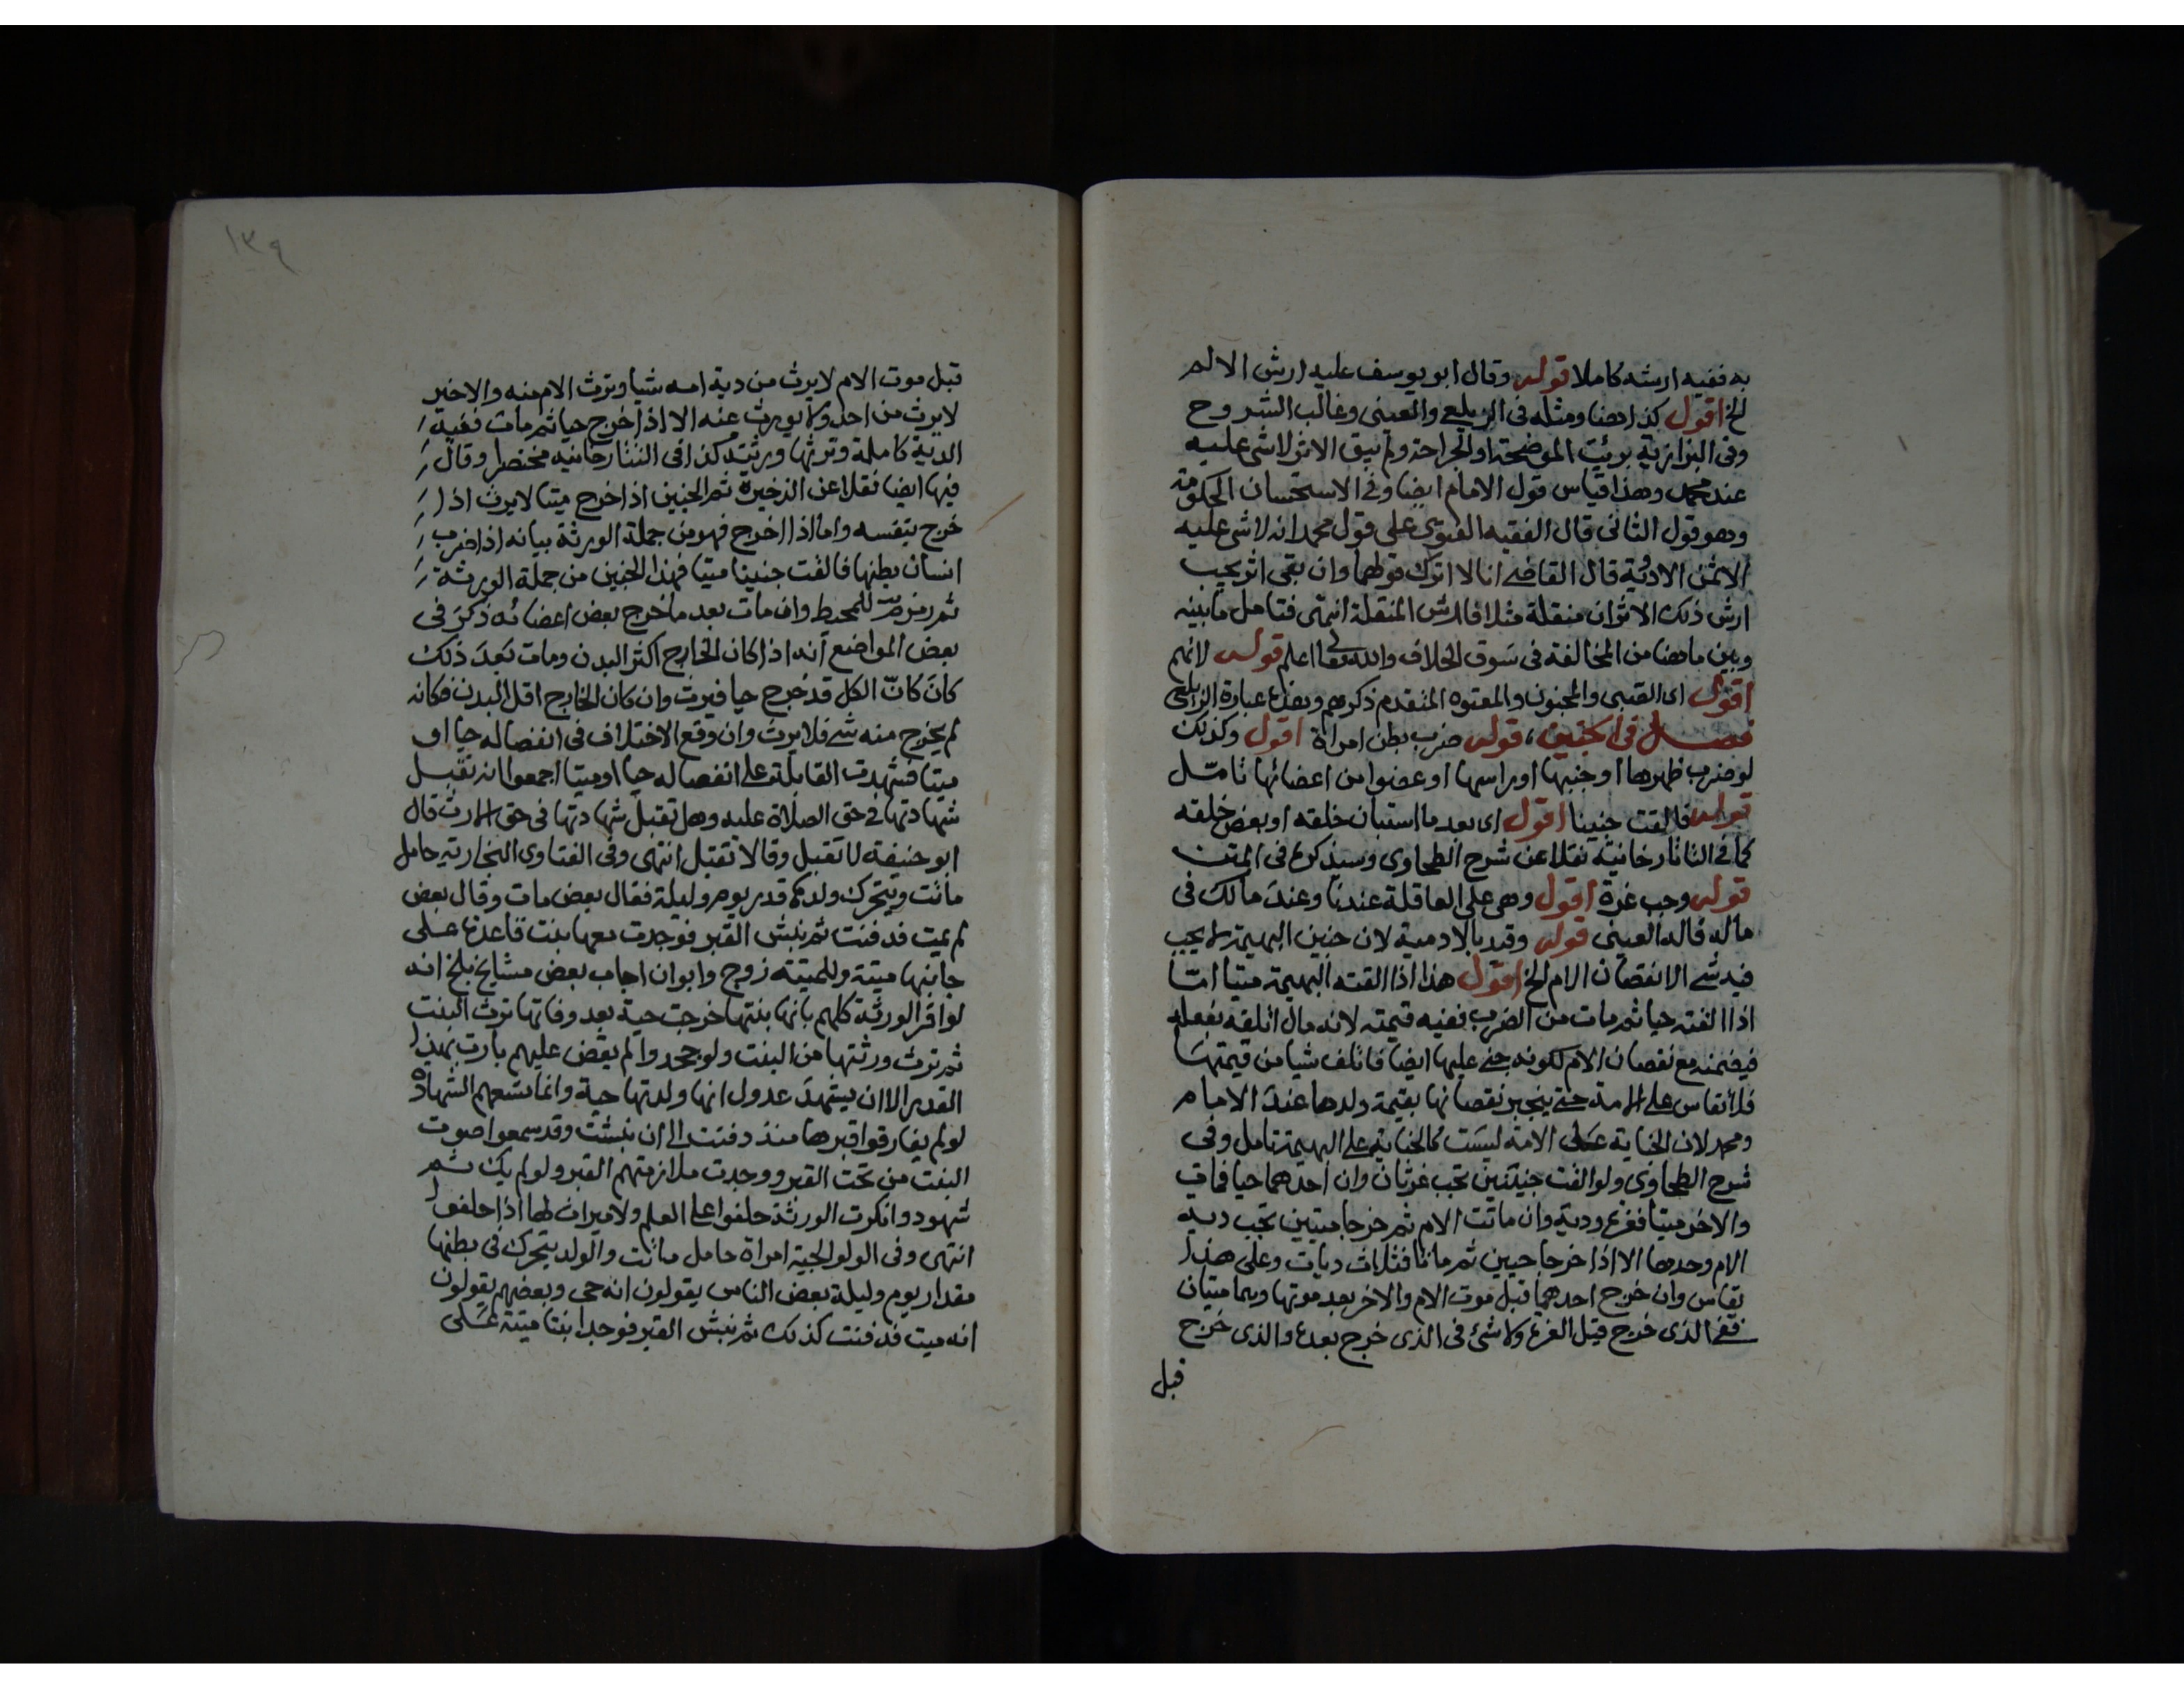 به ففيه ارشه كاملا قوله وقال ابو يوسف عليه ارش الالم
الخ اقول كذا هنا ومثله فى الزيلعى والعينى وغالب الشروح
وفى البزازية برئت الموضحة او الجراحة ولم يبق الاثر لا شى عليه
عند محمد وهذا قياس قول الامام ايضا وفى الاستحسان الحكومة
وهو قول الثانى قال الفقيه الفتوى على قول محمد انه لا شى عليه
الا ثمن الادوية قال القاضى انا لا اترك قولهما وان بقى اثر يجب
ارش ذلك الاثر ان منقلة مثلا فارش المنقلة انتهى فتامل ما بينه
وبين ما هنا من المخالفة فى سوق الخلاف والله تعالى اعلم قوله لانهم
اقول اى الصبى والمجنون والمعتوه المتقدم ذكرهم وهذه عبارة الزيلعى
فصل فى الجنين، قوله ضرب بطن امراة اقول وكذلك
لو ضرب ظهرها او جنبها او راسها او عضوا من اعضائها تامل
قوله فالقت جنينا اقول اى بعد ما استبان خلقه او بعض خلقه
كما فى التاتارخانية نقلا عن شرح الطحاوى وسيذكره فى المتن
قوله وجب غرة اقول وهى على العاقلة عندنا وعند مالك فى
ماله قاله العينى قوله وقيد بالادمية لان جنين البهيمة لا يجب
فيه شى الا نقصان الام الخ اقول هذا اذا القته البهيمة ميتا اما
اذا القته حيا ثم مات من الضرب ففيه قيمته لانه مال اتلفه بفعله
فيضمنه مع نقصان الام لكونه جنى عليها ايضا فاتلف شيا من قيمتها
فلا تقاس على الامة حتى ينجبر نقصانها بقيمة ولدها عند الامام
ومحمد لان الجناية على الامة ليست كالجناية على البهيمة تامل وفى
شرح الطحاوى ولو القت جنينين تجب غرتان وان احدهما حيا فمات
والاخر ميتا فغرة ودية وان ماتت الام ثم خرجا ميتين تجب دية
الام وحدها الا اذا خرجا حيين ثم ماتا فثلاث ديات وعلى هذا
يقاس وان خرج احدهما قبل موت الام والاخر بعد موتها وهما ميتان
ففى الذى خرج قبل الغرة ولا شئ فى الذى خرج بعده والذى خرج
قبل
١٣٩
قبل موت الام لا يرث من دية امه شيا وترث الام منه والاخير
لا يرث من احد ولا يورث عنه الا اذا خرج حيا ثم مات ففيه
الدية كاملة وترثها ورثته كذا فى التتارخانيه مختصرا وقال
فيها ايضا نقلا عن الذخيرة ثم الجنين اذا خرج ميتا لا يرث اذا
خرج بنفسه واما اذا اخرج فهو من جملة الورثة بيانه اذا ضرب
انسان بطنها فالقت جنينا ميتا فهذا الجنين من جملة الورثة
ثم رمز للمحيط وان مات بعد ما خرج بعض اعضائه ذكر فى
بعض المواضع انه اذا كان الخارج اكثر البدن ومات بعد ذلك
كان كانّ الكل قد خرج حيا فيرث وان كان الخارج اقل البدن فكانه
لم يخرج منه شى فلا يرث وان وقع الاختلاف فى انفصاله حيا او
ميتا فشهدت القابلة على انفصاله حيا او ميتا اجمعوا انه تقبل
شهادتها فى حق الصلاة عليه وهل تقبل شهادتها فى حق الارث قال
ابو حنيفة لا تقبل وقالا تقبل انتهى وفى الفتاوى البخارية حامل
ماتت ويتحرك ولدها قدر يوم وليلة فقال بعض مات وقال بعض
لم يمت فدفنت ثم نبش القبر فوجدت معها بنت قاعدة على
جانبها ميتة وللميتة زوج وابوان اجاب بعض مشايخ بلخ انه
لو اقر الورثة كلهم بانها بنتها خرجت حية بعد وفاتها ترث البنت
ثم ترث ورثتها من البنت ولو جحدوا لم يقض عليهم بارث بهذا
القدر الا ان يشهد عدول انها ولدتها حية وانما يسعهم الشهادة
لو لم يفارقوا قبرها منذ دفنت الى ان نبشت وقد سمعوا صوت
البنت من تحت القبر ووجدت ملازمتهم القبر ولو لم يك ثم
شهود وانكرت الورثة حلفوا على العلم ولا ميراث لها اذا حلفوا
انتهى وفى الولوالجية امراة حامل ماتت والولد يتحرك فى بطنها
مقدار يوم وليلة بعض الناس يقولون انه حى وبعضهم يقولون
انه ميت فدفنت كذلك ثم نبش القبر فوجدا بنتا ميتة على